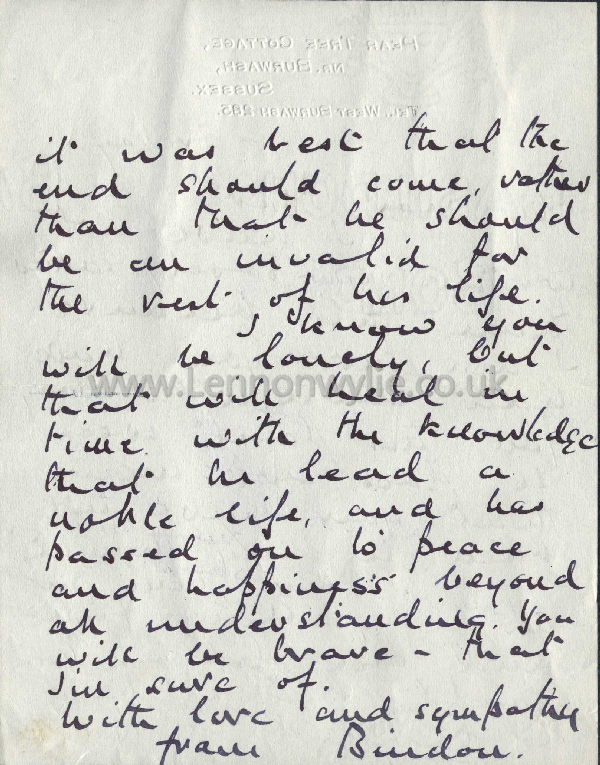 PEAR TREE COTTAGE,
NR. BURWASH,
SUSSEX.
TEL. WEST BURWASH 285.
it was best that the
end should come, rather
than that he should
be an invalid for
the rest of his life.
I know you
will be lonely, but
that will heal in
time with the knowledge
that he lead a
noble life, and has
passed on to peace
and happiness beyond
all understanding. You
will be brave – that
I'm sure of.
With love and sympathy
from Bindon.
www.Lennonwylie.co.uk